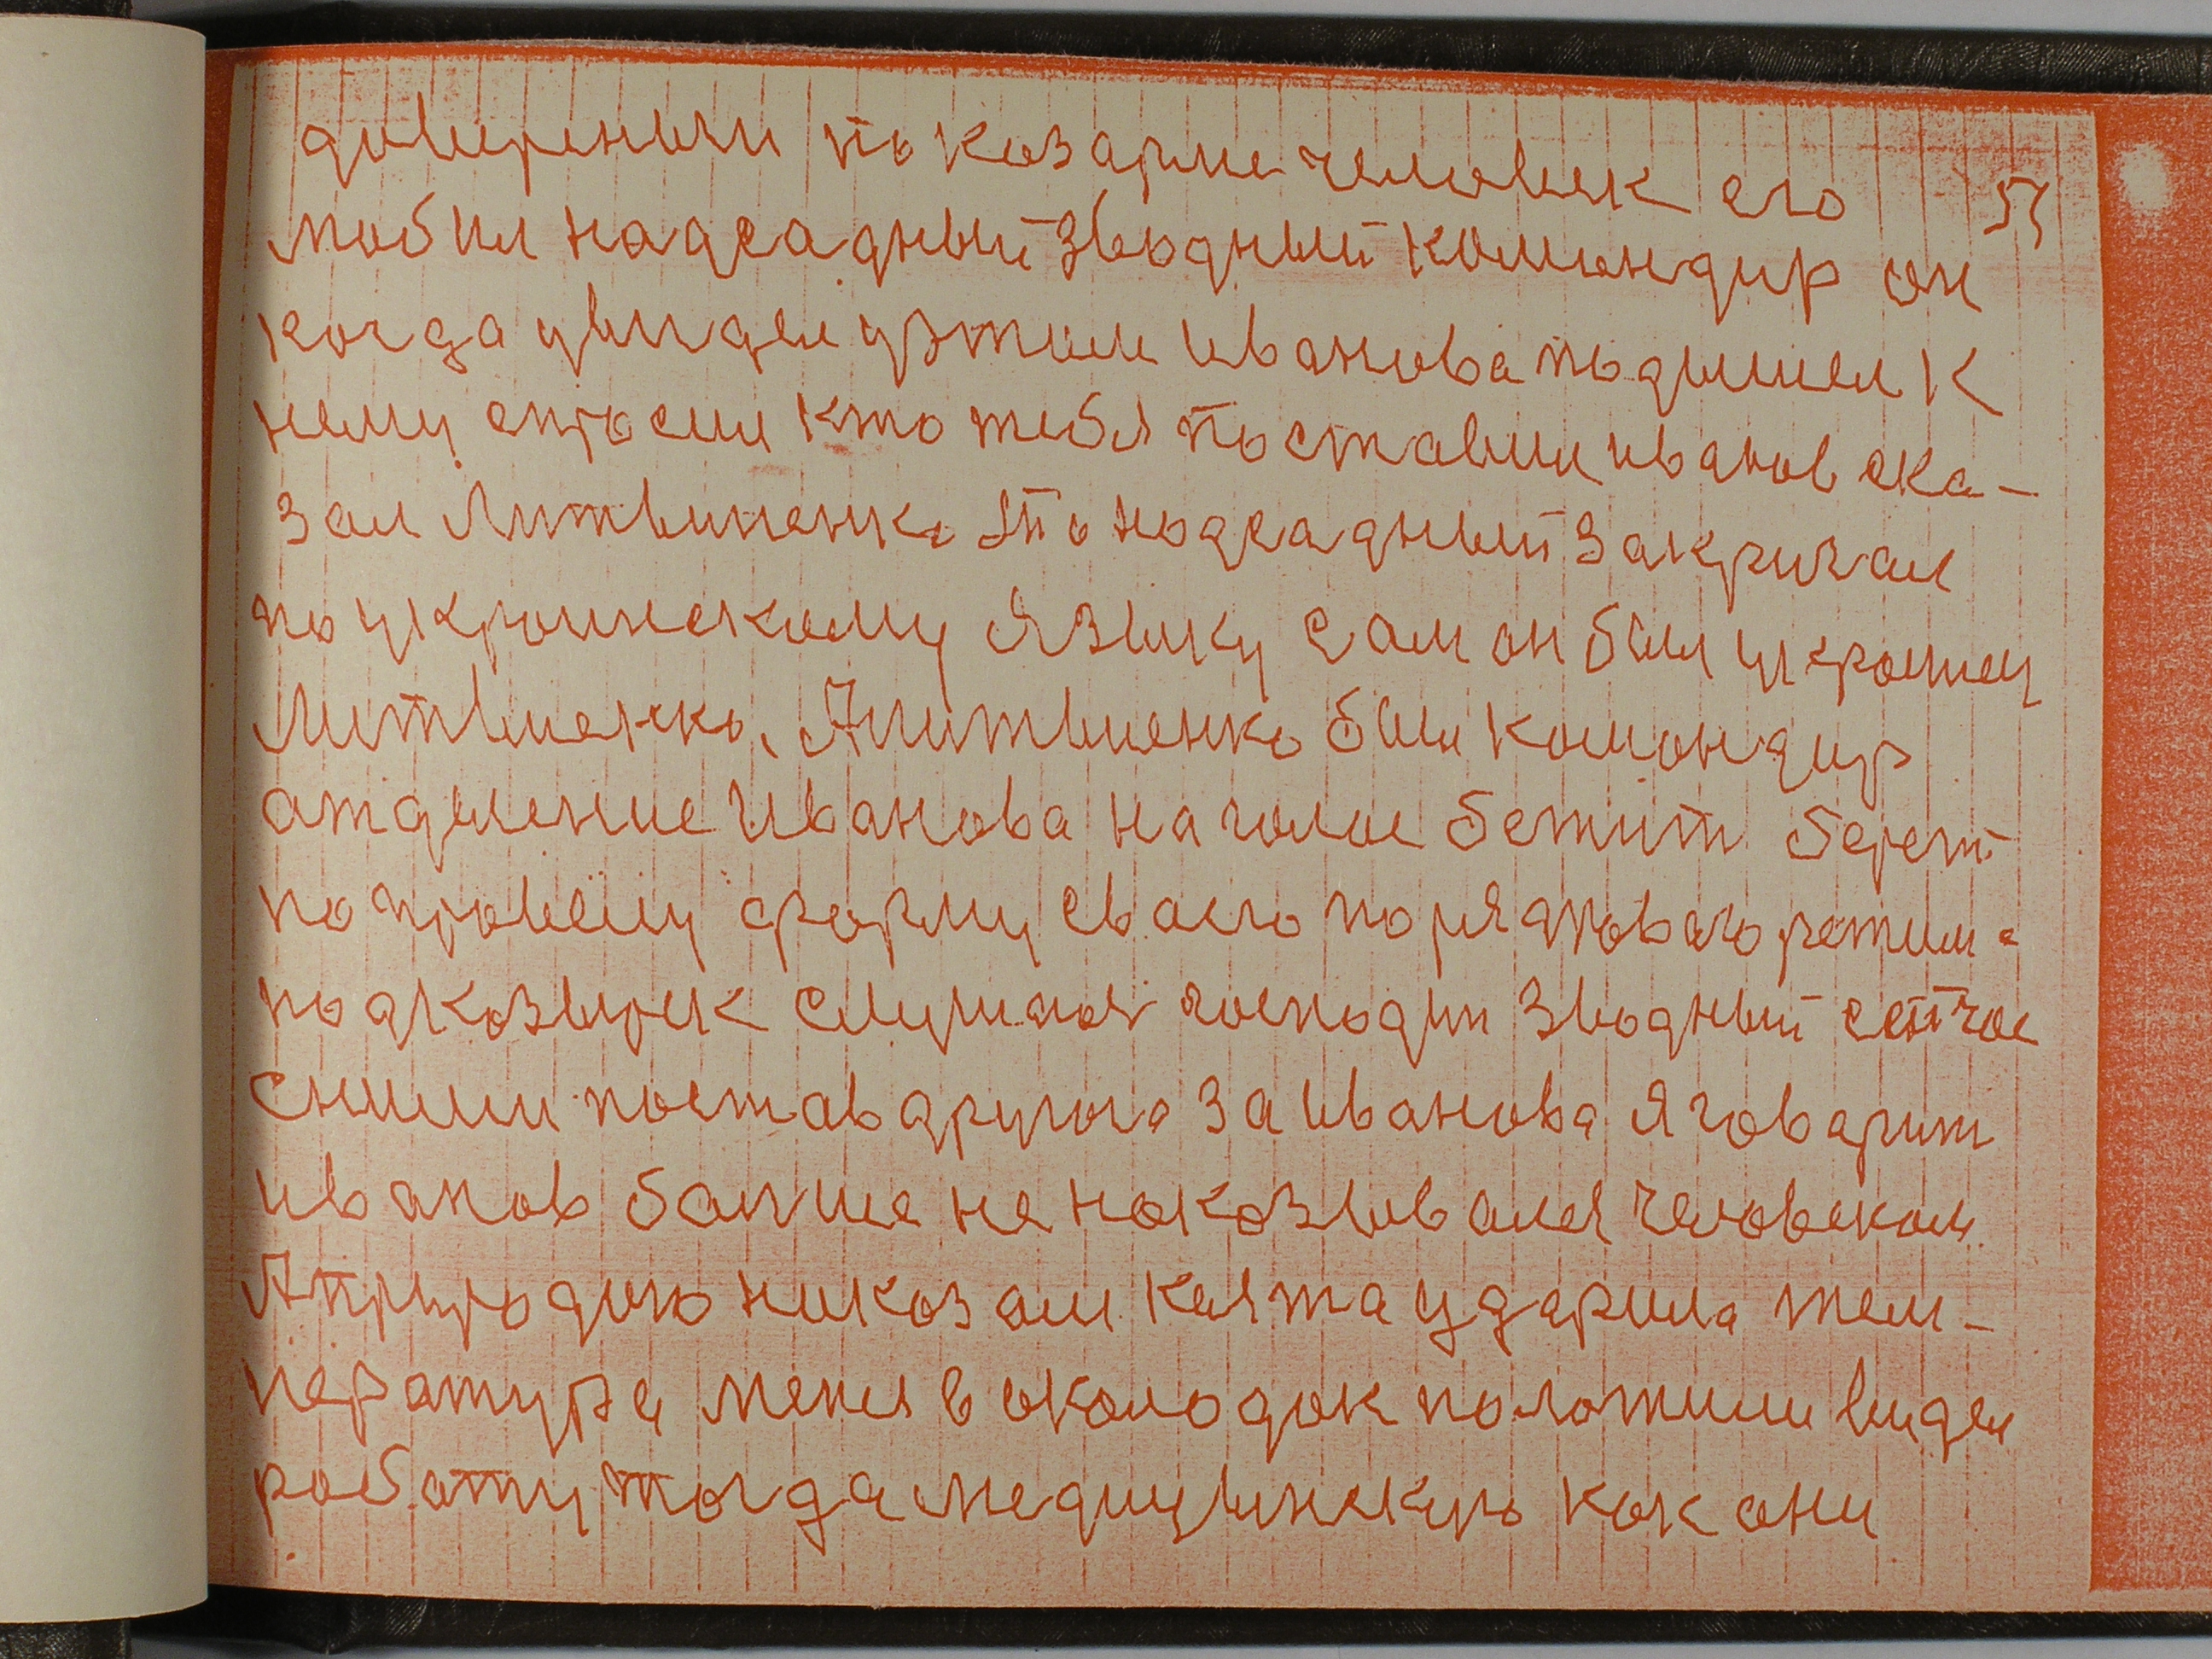 довереныи по козарме человек его
любил надсадный зводный комондир он
когда увидел узтим Иванова подышел к
нему спросил кто тебя поставил иванов ска-
зал Литвиненко Это нодсадный закричал
по укроинскому языку сам он был укроинец
Литвиненко, Алитвиненко был комондир
атделение Иванова на голос бежит берет
по провелу форму сваего порядковаго режима
под козырек слушаюсь господин зводный сейчас
сними постав другого за Иванова я говарит
иванов болше не нокозывался человеком
Априродою никозали каята ударила тем-
пература меня в околодок положили видел
роботу тогда медицынскую кок они
57